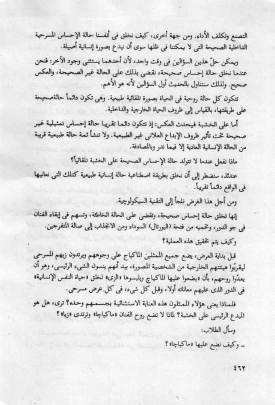 التصنع وتكلف الأداء. ومن جهة أخرى، كيف نخلق في أنفسنا حالة الإحساس المسرحية
الداخلية الصحيحة التي لا يمكننا في ظلها سوى أن نبدع بصورة إنسانية أصيلة.
ويمكن حل هذين السؤالين في وقت واحد، لأن أحدهما يستثني وجود الآخر: فنحن
عندما نخلق حالة إحساس صحيحة، نقضي بذلك على الحالة غير الصحيحة، والعكس
صحيح. ولذلك سنتناول بالحديث أول السؤالين لأنه هو الأهم.
تتكون كل حالة روحية في الحياة بصورة تلقائية طبيعية. وهي تكون دائماً حالة صحيحة
على طريقتها، بالقياس إلى ظروف الحياة الخارجية والداخلية.
أما على الخشبة فيحدث العكس: إذ تتكون دائماً تقريباً حالة إحساس تمثيلية غير
صحيحة تحت تأثير ظروف الإبداع العلاني غير الطبيعية. ولا تنشأ ثمة حالة طبيعية قريبة
من الحالة الإنسانية العادية إلا فيما ندر وبالمصادفة.
ماذا نفعل عندما لا تتولد حالة الإحساس الصحيحة على الخشبة تلقائياً؟
عندئذ، سنضطر إلى أن نخلق بطريقة اصطناعية حالة إنسانية طبيعية كتلك التي نعانيها
في الواقع دائماً تقريباً.
ومن أجل هذا الغرض نلجأ إلى التقنية السيكولوجية.
إنها تخلق حالة إحساس صحيحة، وتقضي على الحالة الخاطئة، وتسهم في إبقاء الفنان
في جو الدور، وتحميه من فتحة (البورتال) السوداء ومن الانجذاب إلى صالة المتفرجين.
وكيف يتم تحقيق هذه العملية؟
قبل بداية العرض، يضع جميع الممثلين الماكياج على وجوههم ويرتدون زيهم المسرحي
ليقربوا هيئتهم الخارجية من الشخصية المصورة، بيد أنهم ينسون الشيء الرئيسي، وهو أن
يعدوا روحهم، بأن يضعوا عليها الماكياج ويلبسوها «الزي» لخلق «حياة النفس الإنسانية»
في الدور الذي عليهم معاناته أولاً، وقبل كل شيء، في كل عرض مسرحي.
فلماذا يعنى هؤلاء الممثلون هذه العناية الاستثنائية بجسمهم وحده؟ ترى، هل هو
المبدع الرئيسي على الخشبة؟ لماذا لا تضع روح الفنان «ماكياجها» وترتدي «زيها»؟
وسأل الطلاب:
ـ وكيف نضع عليها «ماكياجها»؟
٤٦٢